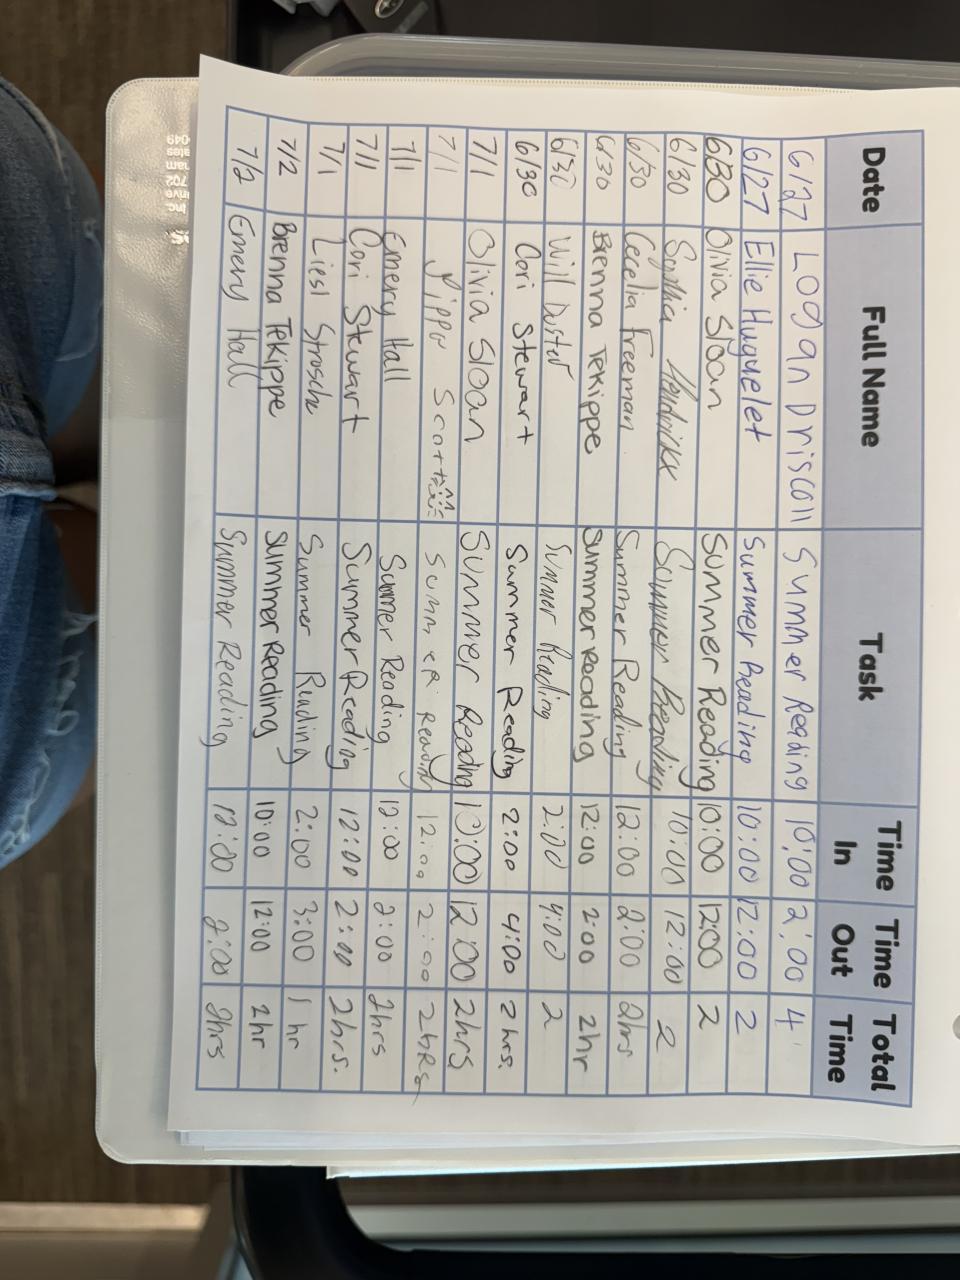 Date Full Name Task Time In Time Out Total Time
6/27 Logan Driscoll Summer Reading 10:00 2:00 4
6/27 Ellie Huguelet Summer Reading 10:00 12:00 2
6/30 Olivia Sloan Summer Reading 10:00 12:00 2
6/30 Summer Reading 10:00 12:00 2
6/30 Cecelia Freeman Summer Reading 12:00 2:00 2hrs
6/30 Brenna Tekippe Summer Reading 12:00 2:00 2hr
6/30 Will Summer Reading 2:00 4:00 2
6/30 Cori Stewart Summer Reading 2:00 4:00 2hrs.
7/1 Olivia Sloan Summer Reading 10:00 12:00 2hrs
7/1 Summer Reading 12:00 2:00 2hRs
7/1 Emery Hall Summer Reading 12:00 2:00 2hrs
7/1 Cori Stewart Summer Reading 12:00 2:00 2hrs.
7/1 Liesl Summer Reading 2:00 3:00 1 hr
7/2 Brenna Tekippe Summer Reading 10:00 12:00 2hr
7/2 Emery Hall Summer Reading 12:00 2:00 2hrs